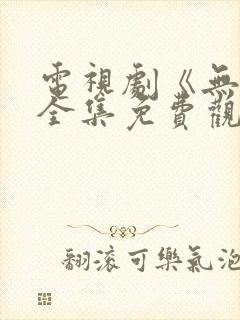 電視劇《無
全集免費觀
翻滾可樂氣泡